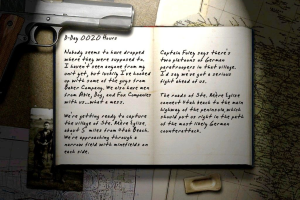 D-Day 0020 Hours
Nobody seems to have dropped
where they were supposed to.
I haven't seen anyone from my
unit yet, but luckily I've hooked
up with some of the guys from
Baker Company. We also have men
from Able, Dog, and Fox Companies
with us...what a mess.
We're getting ready to capture
the village of Ste. Mère Eglise,
about 5 miles from Utah Beach.
We're approaching through a
narrow field with minefields on
each side.
Captain Foley says there's
two platoons of German
paratroopers in that village.
I'd say we've got a serious
fight ahead of us.
The roads of Ste. Mère Eglise
connect Utah beach to the main
highway of the peninsula, which
should put us right in the path
of the most likely German
counterattack.